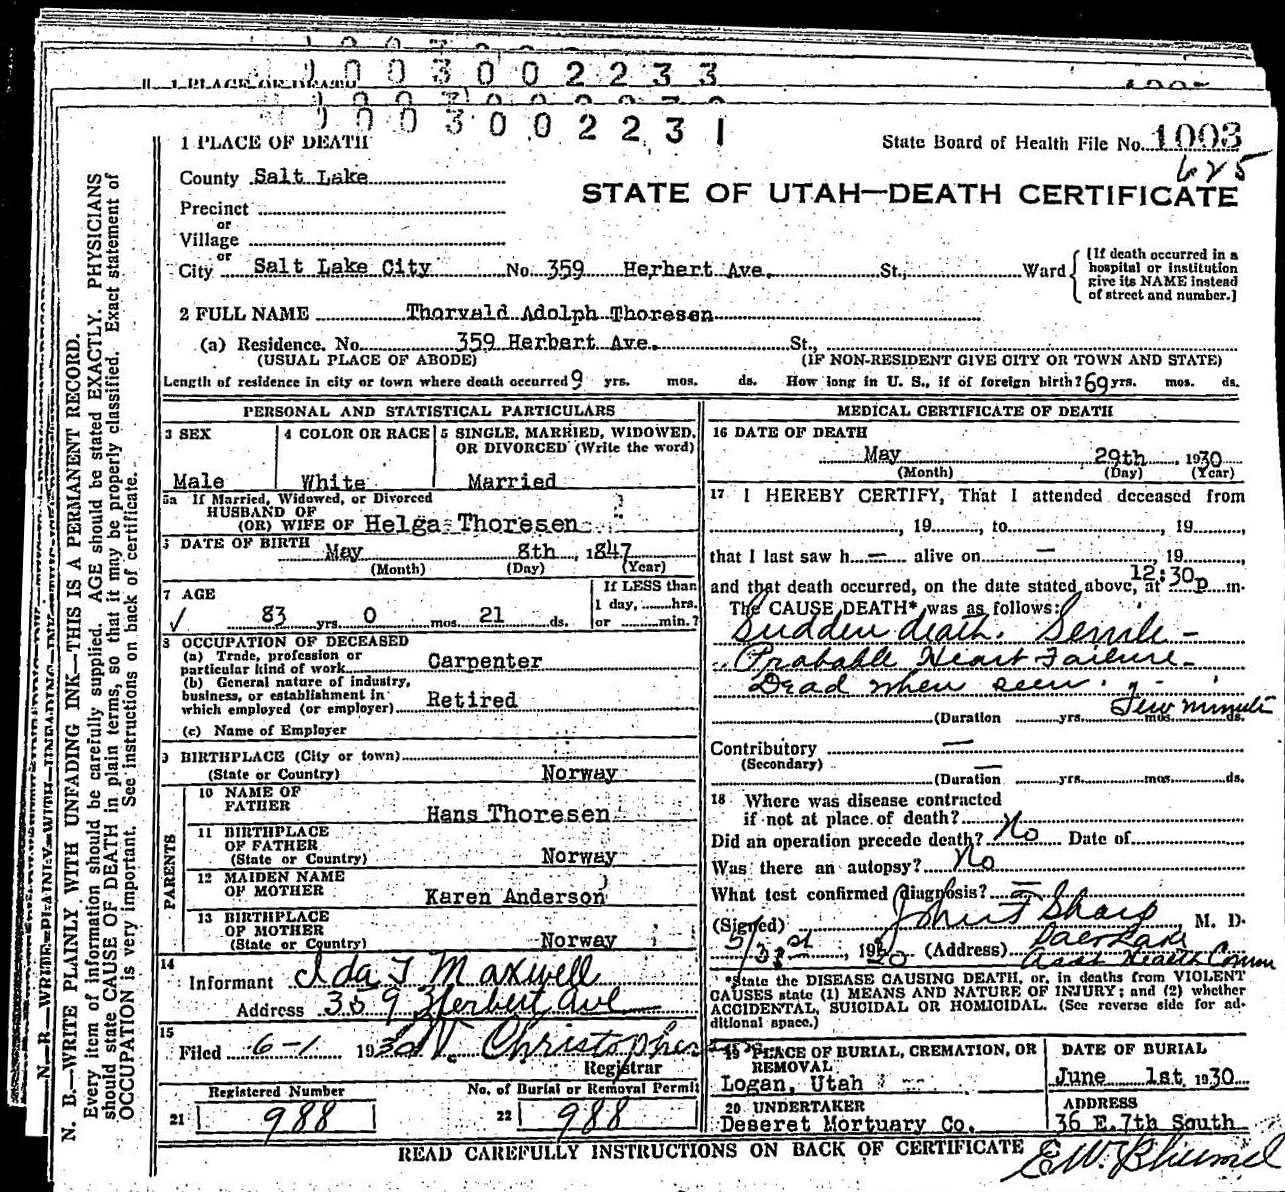 1 0 0 3 0 0 2 2 3 3
1 PLACE OF DEATH
1 0 0 3 0 0 2 2 3 1
1 PLACE OF DEATH
State Board of Health File No. 1003
625
County Salt Lake
STATE OF UTAH—DEATH CERTIFICATE
Precinct
or
Village
or
City Salt Lake City No. 359 Herbert Ave. St., Ward
[If death occurred in a
hospital or institution
give its NAME instead
of street and number.]
2 FULL NAME Thorvald Adolph Thoresen
(a) Residence. No. 359 Herbert Ave. St.,
(USUAL PLACE OF ABODE) (IF NON-RESIDENT GIVE CITY OR TOWN AND STATE)
Length of residence in city or town where death occurred 9 yrs. mos. ds. How long in U. S., if of foreign birth? 69 yrs. mos. ds.
PERSONAL AND STATISTICAL PARTICULARS
3 SEX
Male
4 COLOR OR RACE
White
5 SINGLE, MARRIED, WIDOWED,
OR DIVORCED (Write the word)
Married
5a If Married, Widowed, or Divorced
HUSBAND OF
(OR) WIFE OF Helga Thoresen
DATE OF BIRTH May 8th, 1847
(Month) (Day) (Year)
7 AGE
√ 83 yrs. 0 mos. 21 ds.
If LESS than
1 day, hrs.
or min.?
8 OCCUPATION OF DECEASED
(a) Trade, profession or
particular kind of work Carpenter
(b) General nature of industry,
business, or establishment in
which employed (or employer) Retired
(c) Name of Employer
9 BIRTHPLACE (City or town)
(State or Country) Norway
PARENTS
10 NAME OF
FATHER Hans Thoresen
11 BIRTHPLACE
OF FATHER
(State or Country) Norway
12 MAIDEN NAME
OF MOTHER Karen Anderson
13 BIRTHPLACE
OF MOTHER
(State or Country) Norway
14
Informant Ida T Maxwell
Address 309 Herbert Ave
15
Filed 6-1 1930 Christopher
Registrar
Registered Number
21 988
No. of Burial or Removal Permit
22 988
MEDICAL CERTIFICATE OF DEATH
16 DATE OF DEATH
May 29th, 1930
(Month) (Day) (Year)
17 I HEREBY CERTIFY, That I attended deceased from
, 19 , to , 19 ,
that I last saw h — alive on — , 19
and that death occurred, on the date stated above, at 12:30 p m.
The CAUSE DEATH* was as follows:
Sudden death. Senile -
Probable Heart Failure -
Dead when seen.
Few minutes
(Duration yrs. mos. ds.
Contributory —
(Secondary)
(Duration — yrs. mos. ds.
18 Where was disease contracted
if not at place of death?
Did an operation precede death? No Date of
Was there an autopsy? No
What test confirmed diagnosis? —
(Signed) John T Sharp, M. D.
5/31st, 1930 (Address)
Asst Health Comm
*State the DISEASE CAUSING DEATH, or, in deaths from VIOLENT
CAUSES state (1) MEANS AND NATURE OF INJURY; and (2) whether
ACCIDENTAL, SUICIDAL OR HOMICIDAL. (See reverse side for ad-
ditional space.)
19 PLACE OF BURIAL, CREMATION, OR
REMOVAL
Logan, Utah
DATE OF BURIAL
June 1st 1930
20 UNDERTAKER
Deseret Mortuary Co.
ADDRESS
36 E. 7th South
READ CAREFULLY INSTRUCTIONS ON BACK OF CERTIFICATE
N. B.—WRITE PLAINLY WITH UNFADING INK—THIS IS A PERMANENT RECORD.
Every item of information should be carefully supplied. AGE should be stated EXACTLY. PHYSICIANS
should state CAUSE OF DEATH in plain terms, so that it may be properly classified. Exact statement of
OCCUPATION is very important. See instructions on back of certificate.